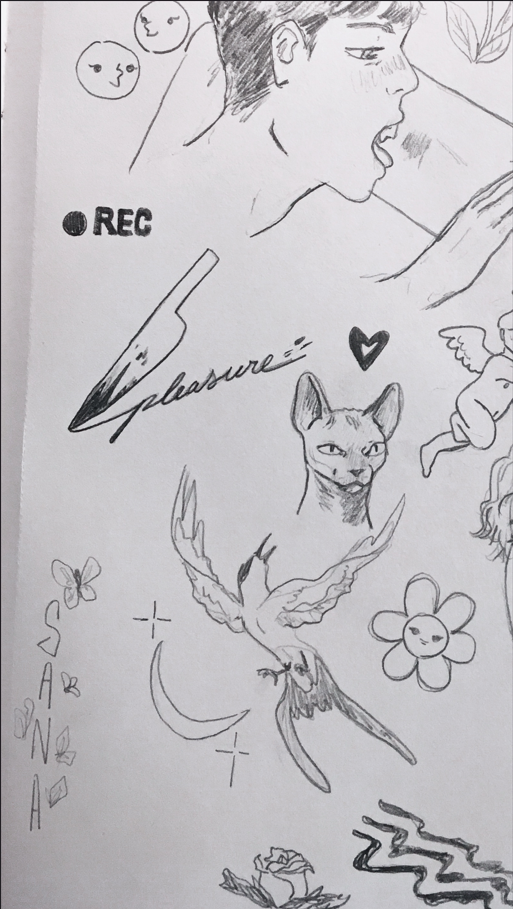 REC
pleasure
SANA